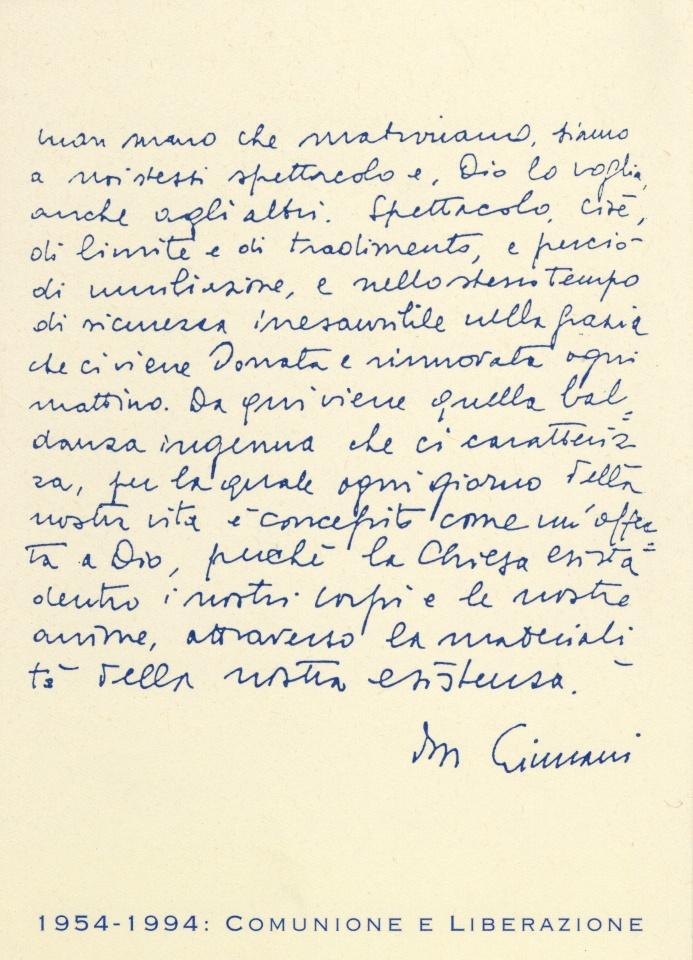 man mano che maturiamo, siamo
a noi stessi spettacolo e, Dio lo voglia,
anche agli altri. Spettacolo, cioè,
di limite e di tradimento, e perciò
di umiliazione, e nello stesso tempo
di sicurezza inesauribile nella grazia
che ci viene Donata e rinnovata ogni
mattino. Da qui viene quella bal=
danza ingenua che ci caratteriz
za, per la quale ogni giorno della
nostra vita è concepito come un'offer=
ta a Dio, perché la Chiesa esista
dentro i nostri corpi e le nostre
anime, attraverso la materiali
tà della nostra esistenza.
don Giussani
1954-1994: COMUNIONE E LIBERAZIONE